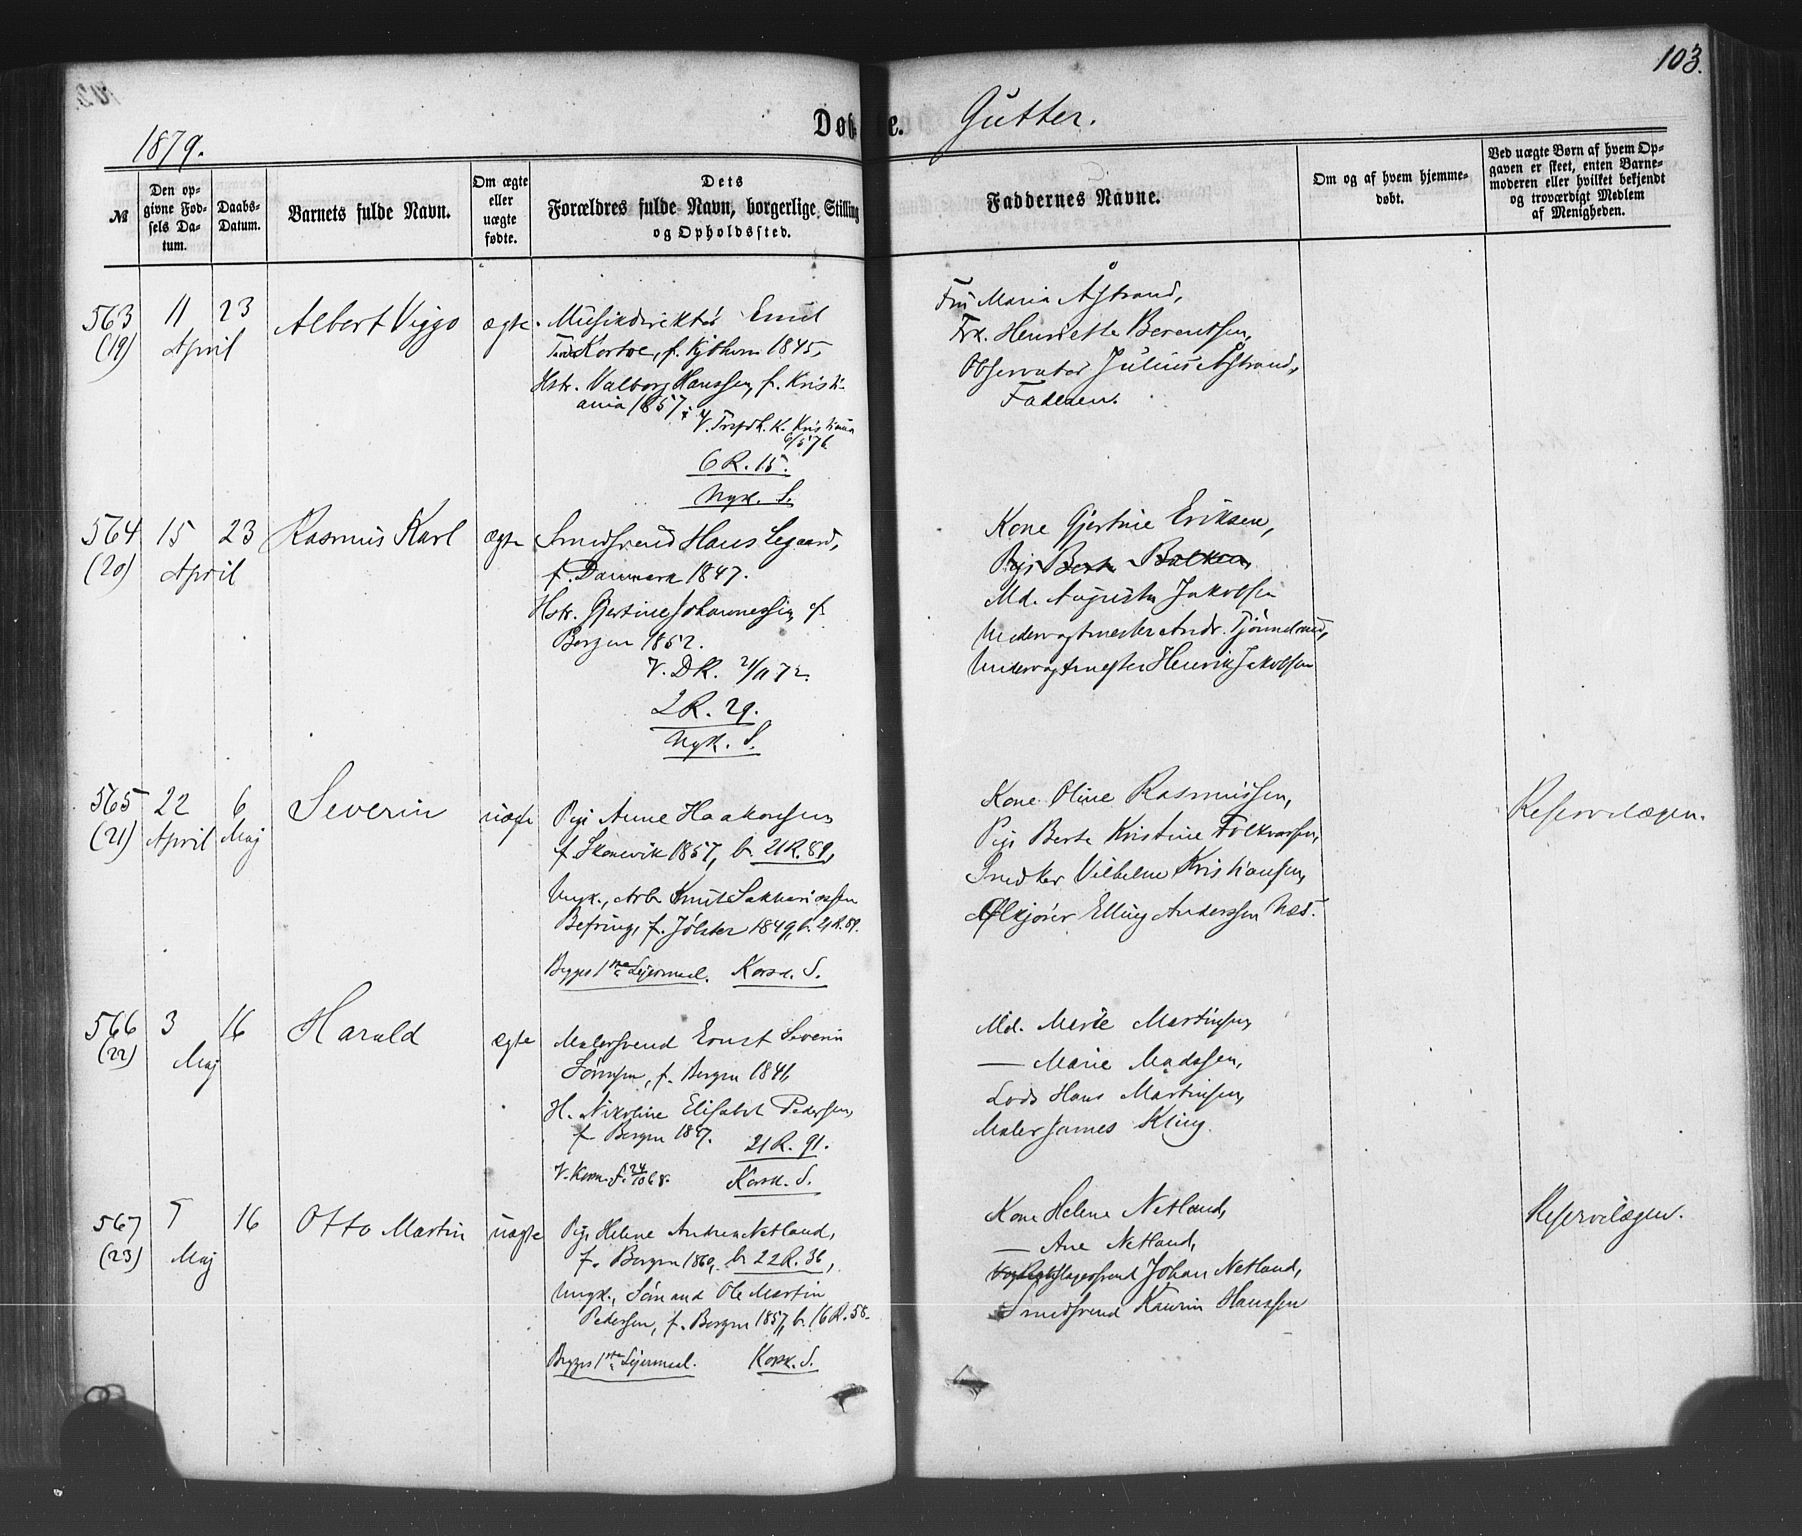 103.
1879.
Døbte.
Gutter.
№
Den opgivne Fødsels Datum.
Daabs-Datum.
Barnets fulde Navn.
Om ægte eller uægte fødte.
Dets Forældres fulde Navn, borgerlige Stilling og Opholdssted.
Faddernes Navne.
Om og af hvem hjemmedøbt.
Ved uægte Børn af hvem Opgaven er skeet, enten Barnemoderen eller hvilket bekjendt og troværdigt Medlem af Menigheden.
563
(19)
11
April
23
Albert Viggo
ægte.
Musikdirektör Emil
Korboe, f. Kjbhavn 1845,
Hstr. Valborg Hanssen, f. Kristi-
ania 1857.
V. Trefdh. K. Kristiania
6/5 76
6 R. 15.
Nyk. S.
Fru Maria Åstrand,
Frk. Henriette Berentsen,
Observator Julius Åstrand,
Faderen.
564
(20)
15
April
23
Rasmus Karl
ægte
Smedsvend Hans Legaard,
f. Danmark 1847.
Hstr. Gjertine Johannessen, f.
Bergen 1852.
V. DK. 21/11 72.
2 R. 29.
Nyk. S.
Kone Gjertine Eriksen,
Pige Berta Balken,
Md. Augusta Jakobsen
Undervagtmester Andr.
Undervagtmester Henrik Jakobsen
565
(21)
22
April
6
Maj
Severin
uægte
Pige Anne Haakonsen
f. Skonevik 1857, b. 21 R. 89,
Ungk., Arb. Knut Sakkariassen
Befring, f. Jölster 1849, b. 21 R. 89.
Begges 1ste Lejermaal. Korsk. S.
Kone Oline Rasmussen,
Pige Berte Kristine Folkvarssen,
Snedker Vilhelm Kristiansen,
Ølkjörer Elling Anderssen Næs.
Reservelægen.
566
(22)
3
Maj
16
Harald
ægte
Malersvend Ernst Severin
Sörensen, f. Bergen 1841,
H. Nikoline Elisabet Pedersen,
f. Bergen 1847.
21 R. 91.
V. Korsk. S. 24/10 68.
Korsk. S.
Md. Merte Martinsen,
— Marie Madssen,
Lods Hans Martinsen,
Maler James Kling.
567
(23)
5
Maj
16
Otto Martin
uægte
Pige Helene Andrea Netland,
f. Bergen 1860, b. 22 R. 36,
Ungk., Sömand Ole Martin
Pedersen, f. Bergen 1857, b. 16 R. 58.
Begges 1ste Lejermaal. Korsk. S.
Kone Helene Netland,
— Ane Netland,
Johan Netland,
Smedsvend Kaurin Hanssen
Reservelægen.